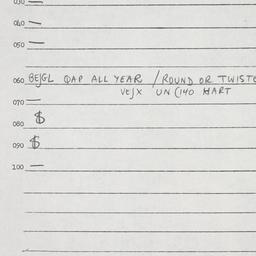 030 —
040 —
050 —
060 BEJGL QAP ALL YEAR / ROUND OR TWISTE
VEJX UN (140 HART
070 —
080 $
090 $
100 —